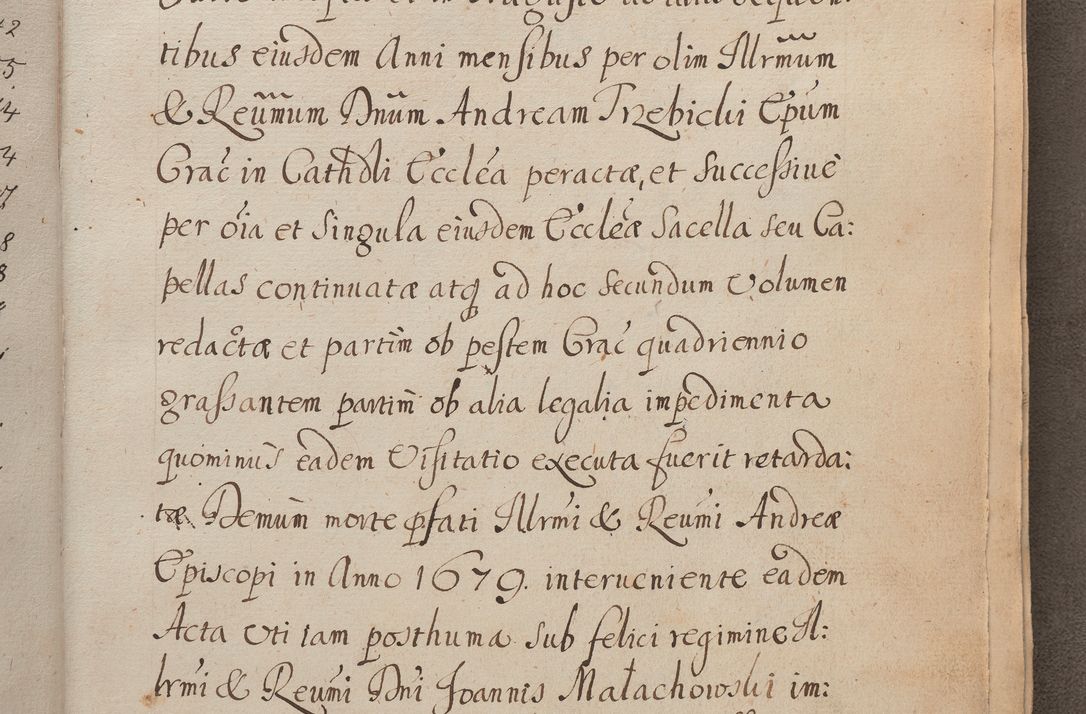 tibus eiusdem Anni mensibus per olim Illrmum
& Reumum Dnum Andream Trzebicki Epum
Crac in Cathdli Ecclea peractæ, et successive
per oia et singula eiusdem Eccleæ Sacella seu Ca:
pellas continuatæ atq ad hoc secundum Volumen
redactæ et partim ob pestem Crac quadriennio
grassantem partim ob alia legalia impedimenta
quominus eadem Visitatio executa fuerit retarda:
tæ. Demum morte pfati Illrmi & Reumi Andreæ
Episcopi in Anno 1679. interueniente eadem
Acta Vti iam posthuma sub felici regimine Il:
lrmi & Reumi Dni Joannis Małachowski im:
42
55
14
4
7
8
8